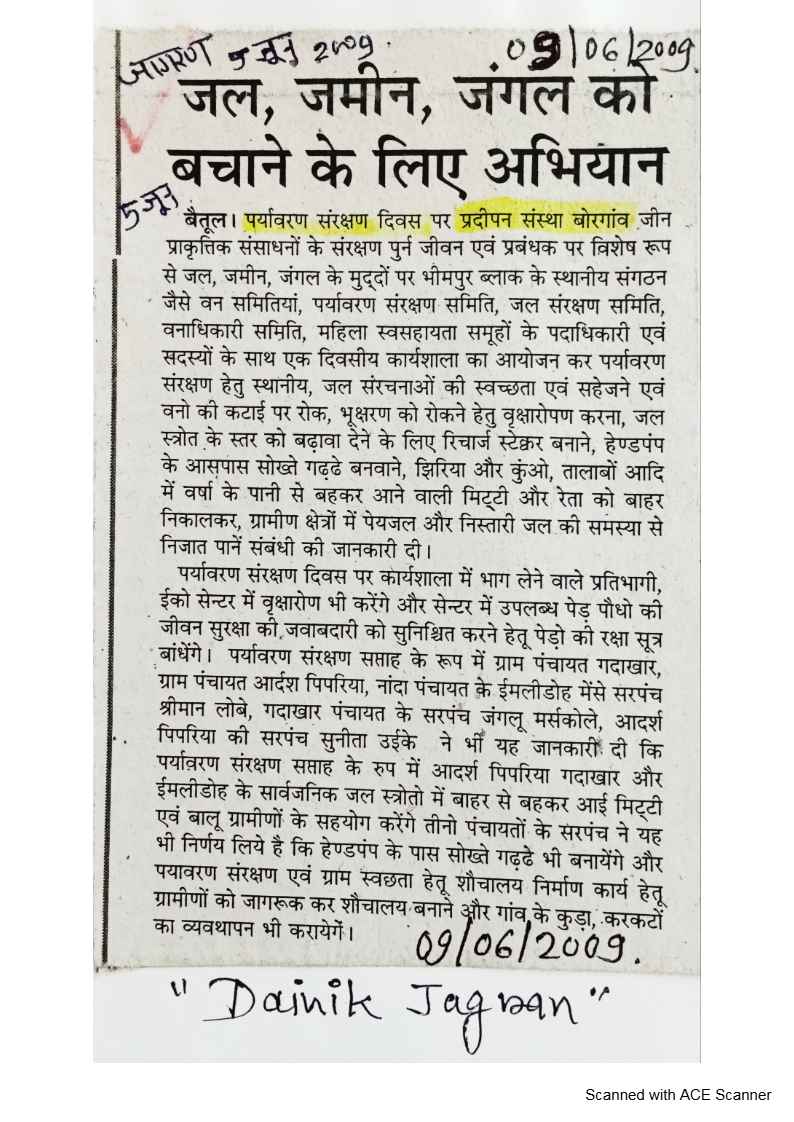 जागरण 5 जून 2009.
09/06/2009.
जल, जमीन, जंगल को
बचाने के लिए अभियान
5 जून
बैतूल। पर्यावरण संरक्षण दिवस पर प्रदीपन संस्था बोरगांव जीन
प्राकृत्तिक संसाधनों के संरक्षण पुर्न जीवन एवं प्रबंधक पर विशेष रूप
से जल, जमीन, जंगल के मुद्दों पर भीमपुर ब्लाक के स्थानीय संगठन
जैसे वन समितियां, पर्यावरण संरक्षण समिति, जल संरक्षण समिति,
वनाधिकारी समिति, महिला स्वसहायता समूहों के पदाधिकारी एवं
सदस्यों के साथ एक दिवसीय कार्यशाला का आयोजन कर पर्यावरण
संरक्षण हेतु स्थानीय, जल संरचनाओं की स्वच्छता एवं सहेजने एवं
वनो की कटाई पर रोक, भूक्षरण को रोकने हेतु वृक्षारोपण करना, जल
स्त्रोत के स्तर को बढ़ावा देने के लिए रिचार्ज स्टेक्रर बनाने, हेण्डपंप
के आसपास सोख्ते गढ्ढे बनवाने, झिरिया और कुंओ, तालाबों आदि
में वर्षा के पानी से बहकर आने वाली मिट्टी और रेता को बाहर
निकालकर, ग्रामीण क्षेत्रों में पेयजल और निस्तारी जल की समस्या से
निजात पानें संबंधी की जानकारी दी।
पर्यावरण संरक्षण दिवस पर कार्यशाला में भाग लेने वाले प्रतिभागी,
ईको सेन्टर में वृक्षारोण भी करेंगे और सेन्टर में उपलब्ध पेड़ पौधो की
जीवन सुरक्षा की जवाबदारी को सुनिश्चित करने हेतु पेड़ो को रक्षा सूत्र
बांधेंगे। पर्यावरण संरक्षण सप्ताह के रूप में ग्राम पंचायत गदाखार,
ग्राम पंचायत आर्दश पिपरिया, नांदा पंचायत के ईमलीडोह मेंसे सरपंच
श्रीमान लोबे, गदाखार पंचायत के सरपंच जंगलू मर्सकोले, आदर्श
पिपरिया की सरपंच सुनीता उईके ने भी यह जानकारी दी कि
पर्यावरण संरक्षण सप्ताह के रुप में आदर्श पिपरिया गदाखार और
ईमलीडोह के सार्वजनिक जल स्त्रोतो में बाहर से बहकर आई मिट्टी
एवं बालू ग्रामीणों के सहयोग करेंगे तीनो पंचायतों के सरपंच ने यह
भी निर्णय लिये है कि हेण्डपंप के पास सोख्ते गढ्ढे भी बनायेंगे और
पयावरण संरक्षण एवं ग्राम स्वछता हेतु शौचालय निर्माण कार्य हेतु
ग्रामीणों को जागरूक कर शौचालय बनाने और गांव के कुड़ा, करकटों
का व्यवथापन भी करायेगें।
09/06/2009.
"Dainik Jagran"
Scanned with ACE Scanner